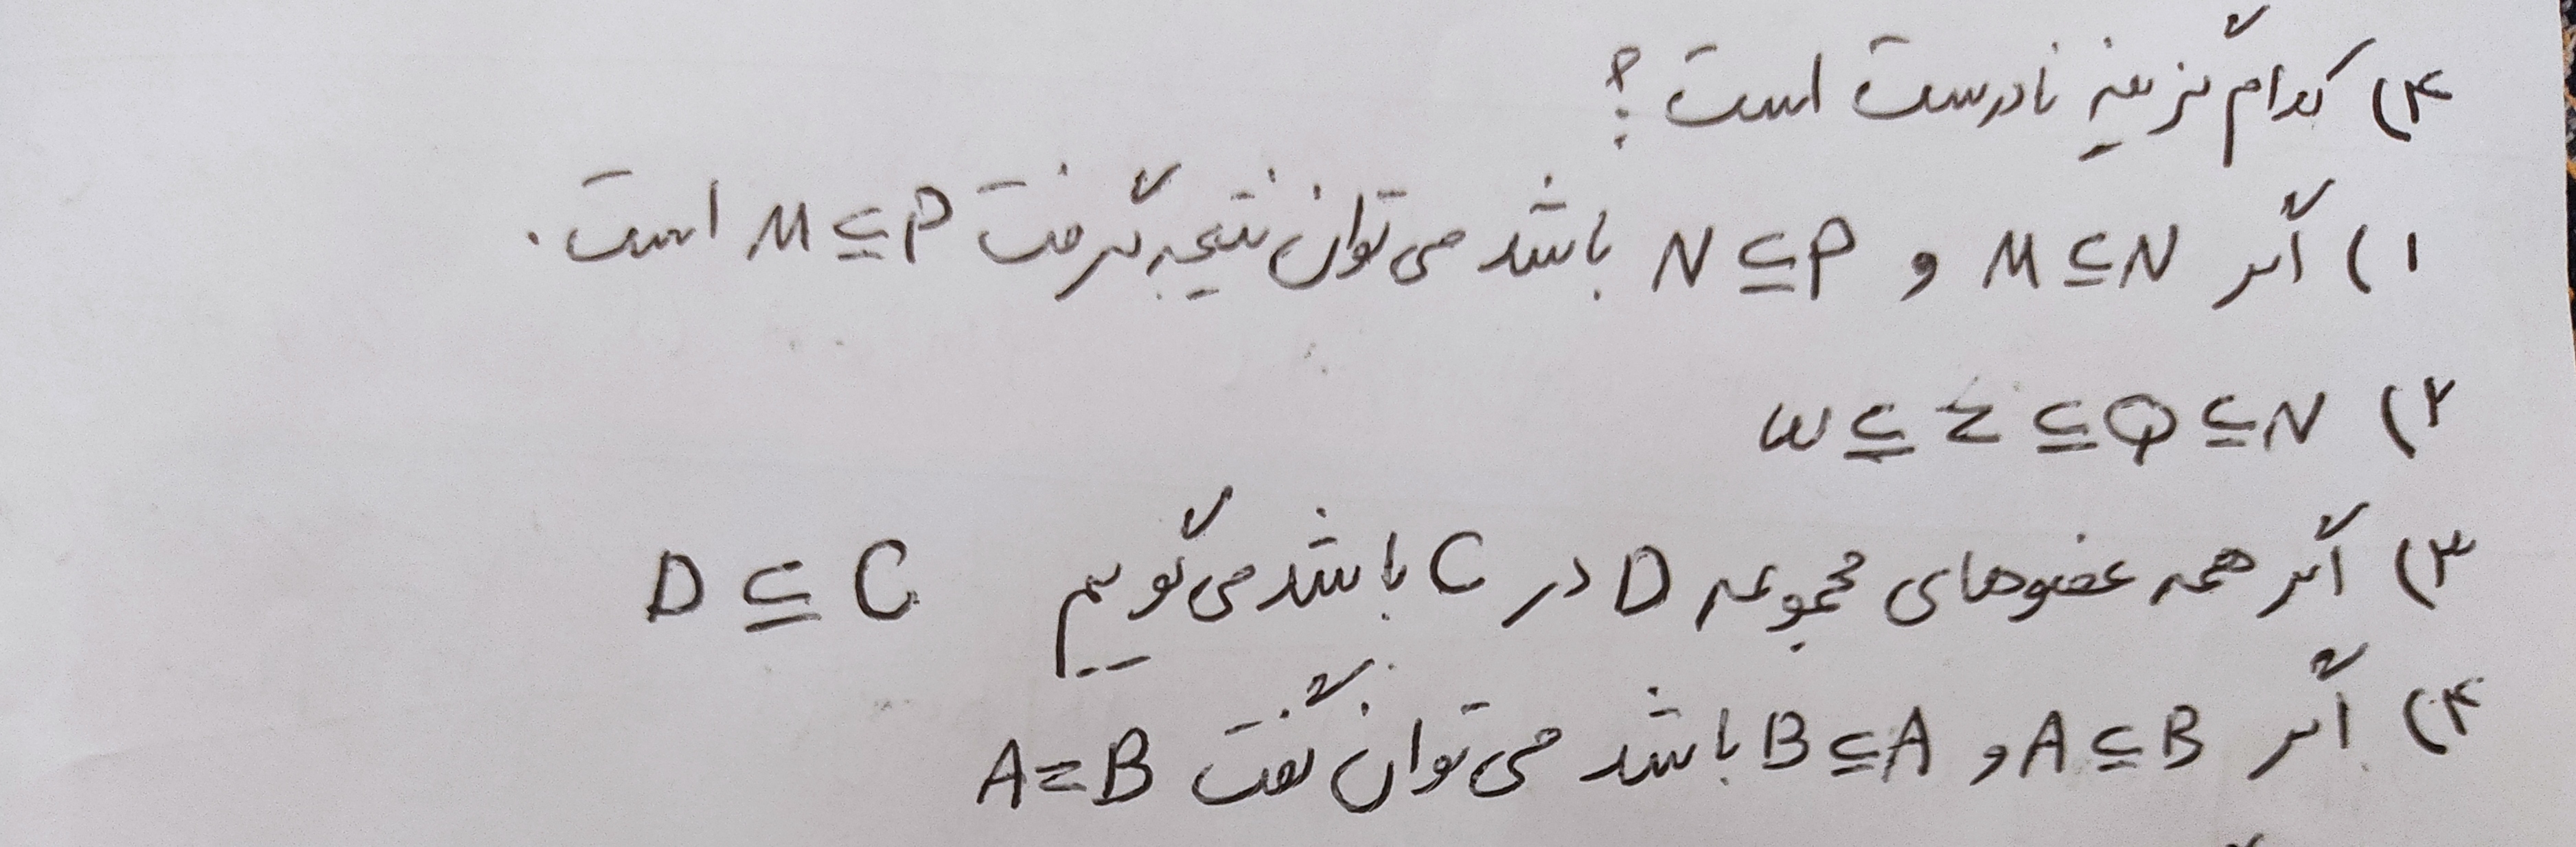 ۴) کدام گزینه نادرست است؟
۱) اگر M ⊆ N و N ⊆ P باشد می توان نتیجه گرفت M ⊆ P است.
۲) W ⊆ Z ⊆ Q ⊆ N
۳) اگر همه عضوهای مجموعه D در C باشد می گوییم D ⊆ C
۴) اگر A ⊆ B و B ⊆ A باشد می توان گفت A = B